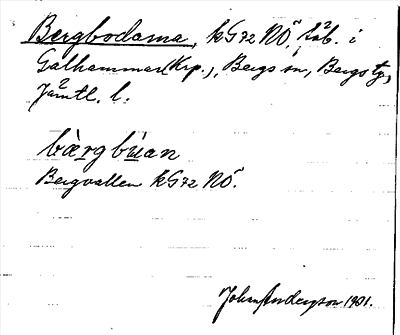 Bergbodarna, kG72NÖ, fäb. i
Galhammar (Krp.), Bergs sn, Bergs tg,
Jämtl. l.
bærgbuan
Bergvallen kG72 NÖ.
John Anderson 1901.